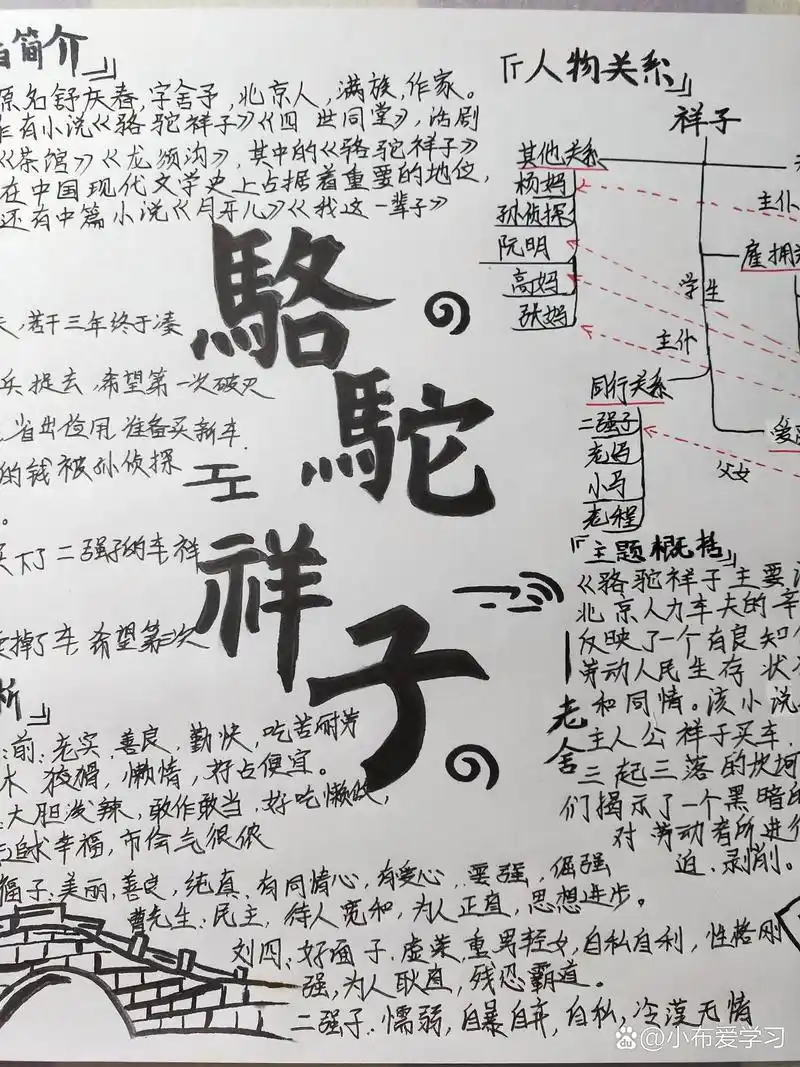 简介」
原名舒庆春,字舍予,北京人,满族,作家。
有小说《骆驼祥子》《四世同堂》,话剧
《茶馆》《龙须沟》,其中的《骆驼祥子》
在中国现代文学史上占据着重要的地位,
还有中篇小说《月牙儿》《我这一辈子》
,苦干三年终于凑
兵捉去,希望第一次破灭
省出俭用准备买新车.
的钱被孙侦探
。
买下了二强子的车祥
卖掉了车 希望第三次
駱駝祥子
析」
:前:老实,善良,勤快,吃苦耐劳
狡猾,懒惰,好占便宜。
大胆泼辣,敢作敢当,好吃懒做,
追求幸福,市侩气很浓
福子:美丽,善良,纯真,有同情心,有爱心,要强,倔强
曹先生:民主,待人宽和,为人正直,思想进步。
刘四:好面子,虚荣,重男轻女,自私自利,性格刚
强,为人耿直,残忍霸道。
二强子:懦弱,自暴自弃,自私,冷漠无情
「人物关系」
祥子
其他关系
杨妈
孙侦探
阮明
高妈
张妈
主仆
雇拥
学生
主仆
同行关系
二强子
老马
小马
老程
父女
「主题概括」
《骆驼祥子主要
北京人力车夫的辛
反映了一个有良知
劳动人民生存状
和同情。该小说
主人公祥子买车
三起三落的坎坷
们揭示了一个黑暗的
对劳动者所进行
迫、剥削。
—老舍
@小布爱学习